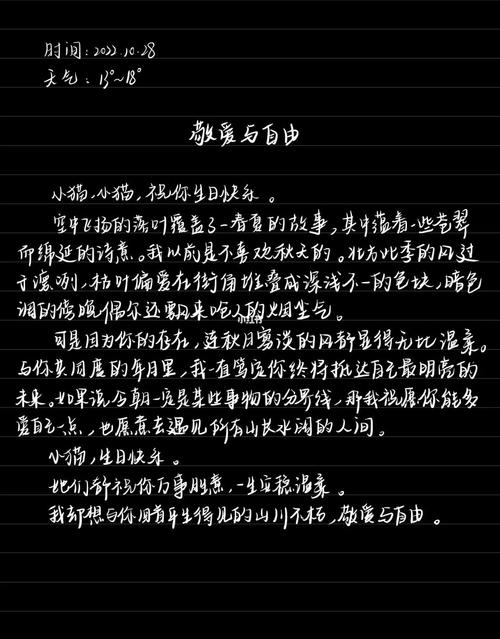 时间:2022.10.28
天气:13°~18°
敬爱与自由
小猫,小猫,祝你生日快乐。
空中飞扬的落叶覆盖了一春夏的故事,其中蕴着一些苍翠
而绵延的诗意。我以前是不喜欢秋天的。北方此季的风过
于凛冽,枯叶偏爱在街角堆叠成深浅不一的色块,暗色
调的傍晚偶尔还飘来呛人的烟尘气。
小红书
可是因为你的存在,连秋日寡淡的风都显得无比温柔。
与你共同度的年月里,我一直笃定你终将抵达自己最明亮的
未来。如果说今朝一定是某些事物的分界线,那我祝愿你能多
爱自己一点,也愿意去遇见所有山长水阔的人间。
小猫,生日快乐。
她们都祝你万事胜意,一生安稳温柔。
我却想与你用着平生得见的山川不朽,敬爱与自由。